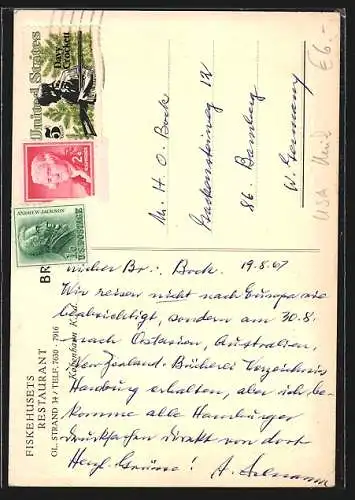 United States
Davy Crockett
5
2¢
ANDREW JACKSON
1¢
U.S. POSTAGE
Mr. H. O. Bock
12
86. Bamberg
W. Germany
USA
£6.-
BR
FISKEHUSETS
RESTAURANT
GL. STRAND 34 / TELF. 7630 - 7916
København K.
Br.: Bock. 19.8.67
Wir reisen nicht nach Europa wie
beabsichtigt, sondern am 30.8.
nach Ostasien, Australien,
Neu Zealand. Bücherei Verzeichnis
Hamburg erhalten, aber ich be-
komme alle Hamburger
Drucksachen direkt von dort
Herzl. Grüsse! A.